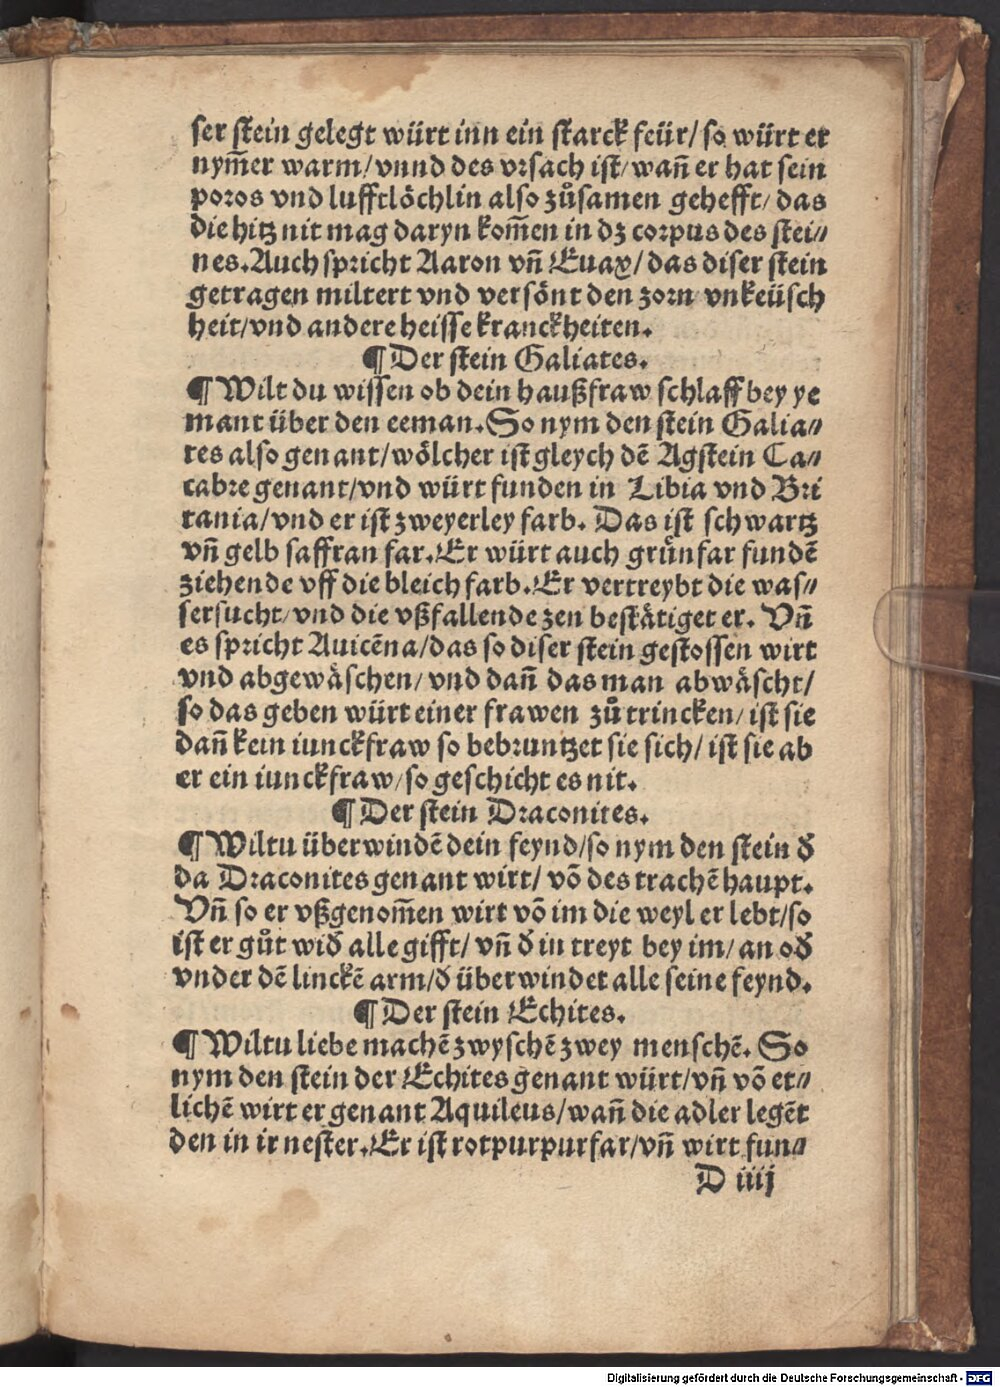 ser stein gelegt würt inn ein starck feür/ so würt er
nym̄er warm/ vnnd des vrsach ist/ wañ er hat sein
poros vnd lufftlöchlin also zůsamen gehefft/ das
die hitz nit mag daryn kom̄en in dz corpus des stei⸗
nes. Auch spricht Aaron vñ Euax/ das diser stein
getragen miltert vnd versönt den zorn vnkeüsch
heit/ vnd andere heisse kranckheiten.
¶ Der stein Galiates.
¶ Wilt du wissen ob dein haußfraw schlaff bey ye
mant über den eeman. So nym den stein Galia⸗
tes also genant/ wölcher ist gleych dē Agstein Ca⸗
cabre genant/ vnd würt funden in Libia vnd Bri
tania/ vnd er ist zweyerley farb. Das ist schwartz
vñ gelb saffran far. Er würt auch grünfar fundē
ziehende vff die bleich farb. Er vertreybt die was⸗
sersucht/ vnd die vßfallende zen bestätiget er. Vñ
es spricht Auicēna/ das so diser stein gestossen wirt
vnd abgewäschen/ vnd dañ das man abwäscht/
so das geben würt einer frawen zů trincken/ ist sie
dañ kein iunckfraw so bebruntzet sie sich/ ist sie ab
er ein iunckfraw/ so geschicht es nit.
¶ Der stein Draconites.
¶ Wiltu überwindē dein feynd/ so nym den stein ð
da Draconites genant wirt/ võ des trachē haupt.
Vñ so er vßgenom̄en wirt võ im die weyl er lebt/ so
ist er gůt wið alle gifft/ vñ ð in treyt bey im/ an oð
vnder dē linckē arm/ ð überwindet alle seine feynd.
¶ Der stein Echites.
¶ Wiltu liebe machē zwyschē zwey menschē. So
nym den stein der Echites genant würt/ vñ võ et⸗
lichē wirt er genant Aquileus/ wañ die adler legēt
den in ir nester. Er ist rotpurpurfar/ vñ wirt fun⸗
D iiij
Digitalisierung gefördert durch die Deutsche Forschungsgemeinschaft - DFG